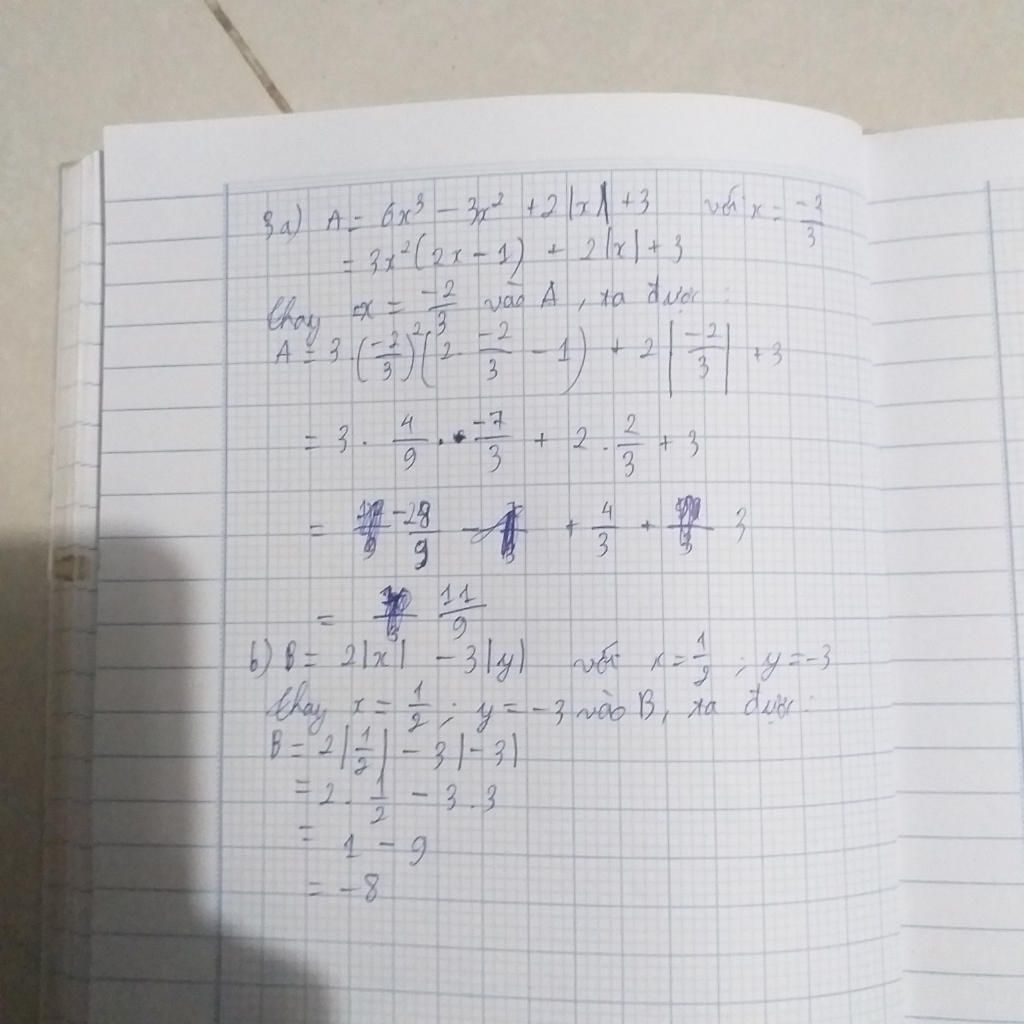 3a) A = 6x³ - 3x² + 2|x| + 3 với x = -2/3
= 3x²(2x - 1) + 2|x| + 3
thay x = -2/3 vào A, ta được:
A = 3 . (-2/3)² (2 . -2/3 - 1) + 2 |-2/3| + 3
= 3 . 4/9 . -7/3 + 2 . 2/3 + 3
= -28/9 + 4/3 + 3
= 11/9
b) B = 2|x| - 3|y| với x = 1/2 ; y = -3
thay x = 1/2 ; y = -3 vào B, ta được:
B = 2|1/2| - 3|-3|
= 2 . 1/2 - 3 . 3
= 1 - 9
= -8